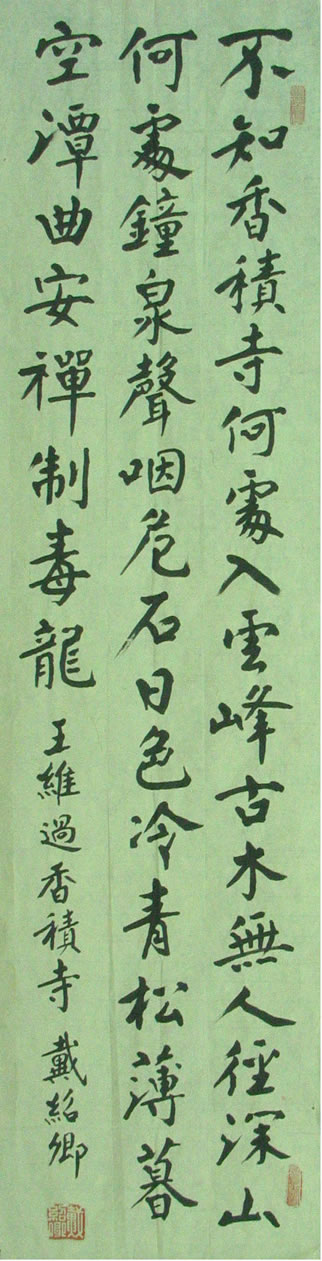 不知香積寺何處入雲峰古木無人徑深山
何處鐘泉聲咽危石日色冷青松薄暮
空潭曲安禪制毒龍 王維過香積寺 戴紹卿